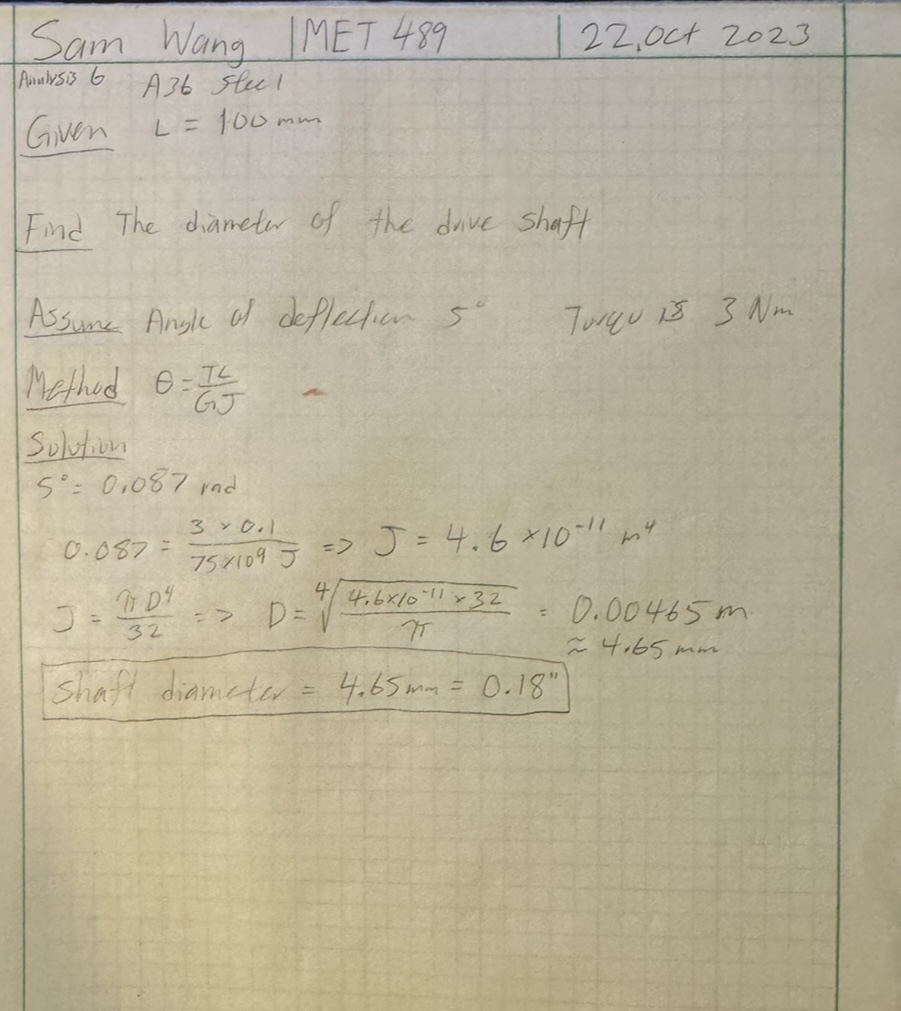 Sam Wang | MET 489 | 22,Oct 2023
Analysis 6 A36 Steel
Given L = 100 mm
Find The diameter of the drive shaft
Assume Angle of deflection 5° Torqu is 3 Nm
Method θ = TL/GJ
Solution
5° = 0.087 rad
0.087 = 3 × 0.1 / 75×10⁹ J => J = 4.6 ×10⁻¹¹ m⁴
J = πD⁴/32 => D = ⁴√(4.6×10⁻¹¹ × 32 / π) = 0.00465 m
≈ 4.65 mm
Shaft diameter = 4.65mm = 0.18"